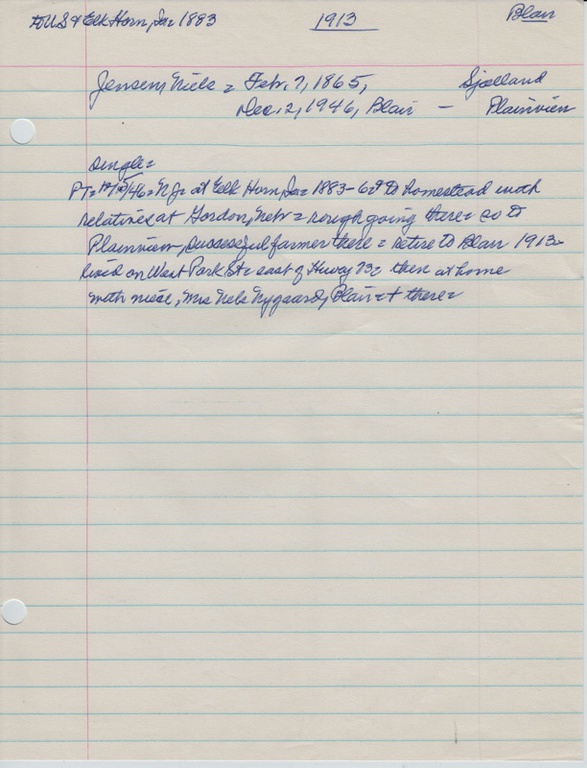 to US & Elk Horn, Ia = 1883 1913 Blair
Jensen, Niels = Feb. 7, 1865, Sjælland
Dec. 2, 1946, Blair — Plainview
single =
PT = 12/5/46 = NJ = at Elk Horn, Ia = 1883 - to homestead with
relatives at Gordon, Nebr = rough going there = so to
Plainview, successful farmer there = retire to Blair 1913 -
lived on West Park St = east of Hiway 73 = then at home
with niece, Mrs Nels Nygaard, Blair = + there =